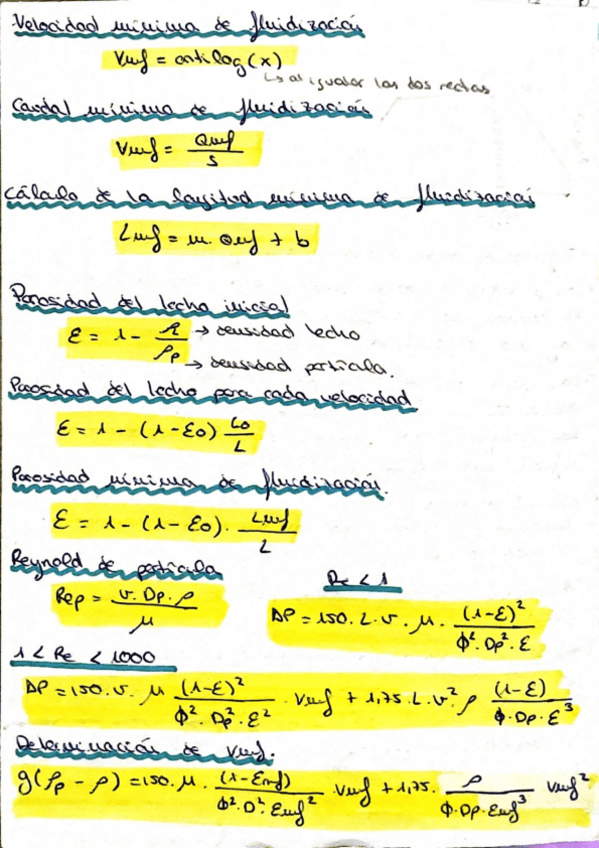 Velocidad mínima de fluidización
Vmf = antilog(x)
↳ al igualar las dos rectas
Caudal mínimo de fluidización
Vmf = Qmf / S
Cálculo de la longitud mínima de fluidización
Lmf = m. Qmf + b
Porosidad del lecho inicial
ε = 1 - ρl / ρp → densidad lecho
→ densidad partícula.
Porosidad del lecho para cada velocidad
ε = 1 - (1 - ε0) L0 / L
Porosidad mínima de fluidización.
ε = 1 - (1 - ε0) . Lmf / L
Reynold de partícula
Rep = v. Dp. ρ / μ
Re < 1
ΔP = 150. L. v. μ. (1-ε)² / φ². Dp². ε
1 < Re < 1000
ΔP = 150. v. μ (1-ε)² / φ². Dp². ε² . Vmf + 1,75. L. v² ρ (1-ε) / φ. Dp. ε³
Determinación de Vmf.
g(ρp - ρ) = 150. μ. (1-εmf) / φ². D². εmf² Vmf + 1,75. ρ / φ. Dp. εmf³ Vmf²